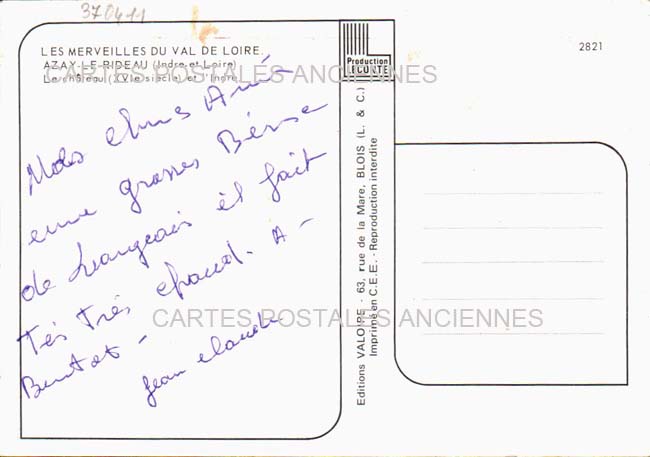 370411
LES MERVEILLES DU VAL DE LOIRE.
AZAY-LE-RIDEAU (Indre-et-Loire)
Le château (XVIe siècle) et l'Indre
CARTES POSTALES ANCIENNES
Production
LECONTE
2821
chers
une grosses
de Langeais il fait
Très Très chaud. A-
Bientot-
Jean claude
CARTES POSTALES ANCIENNES
Editions VALOIRE - 63, rue de la Mare, BLOIS (L. & C.)
Imprimé en C.E.E. - Reproduction interdite